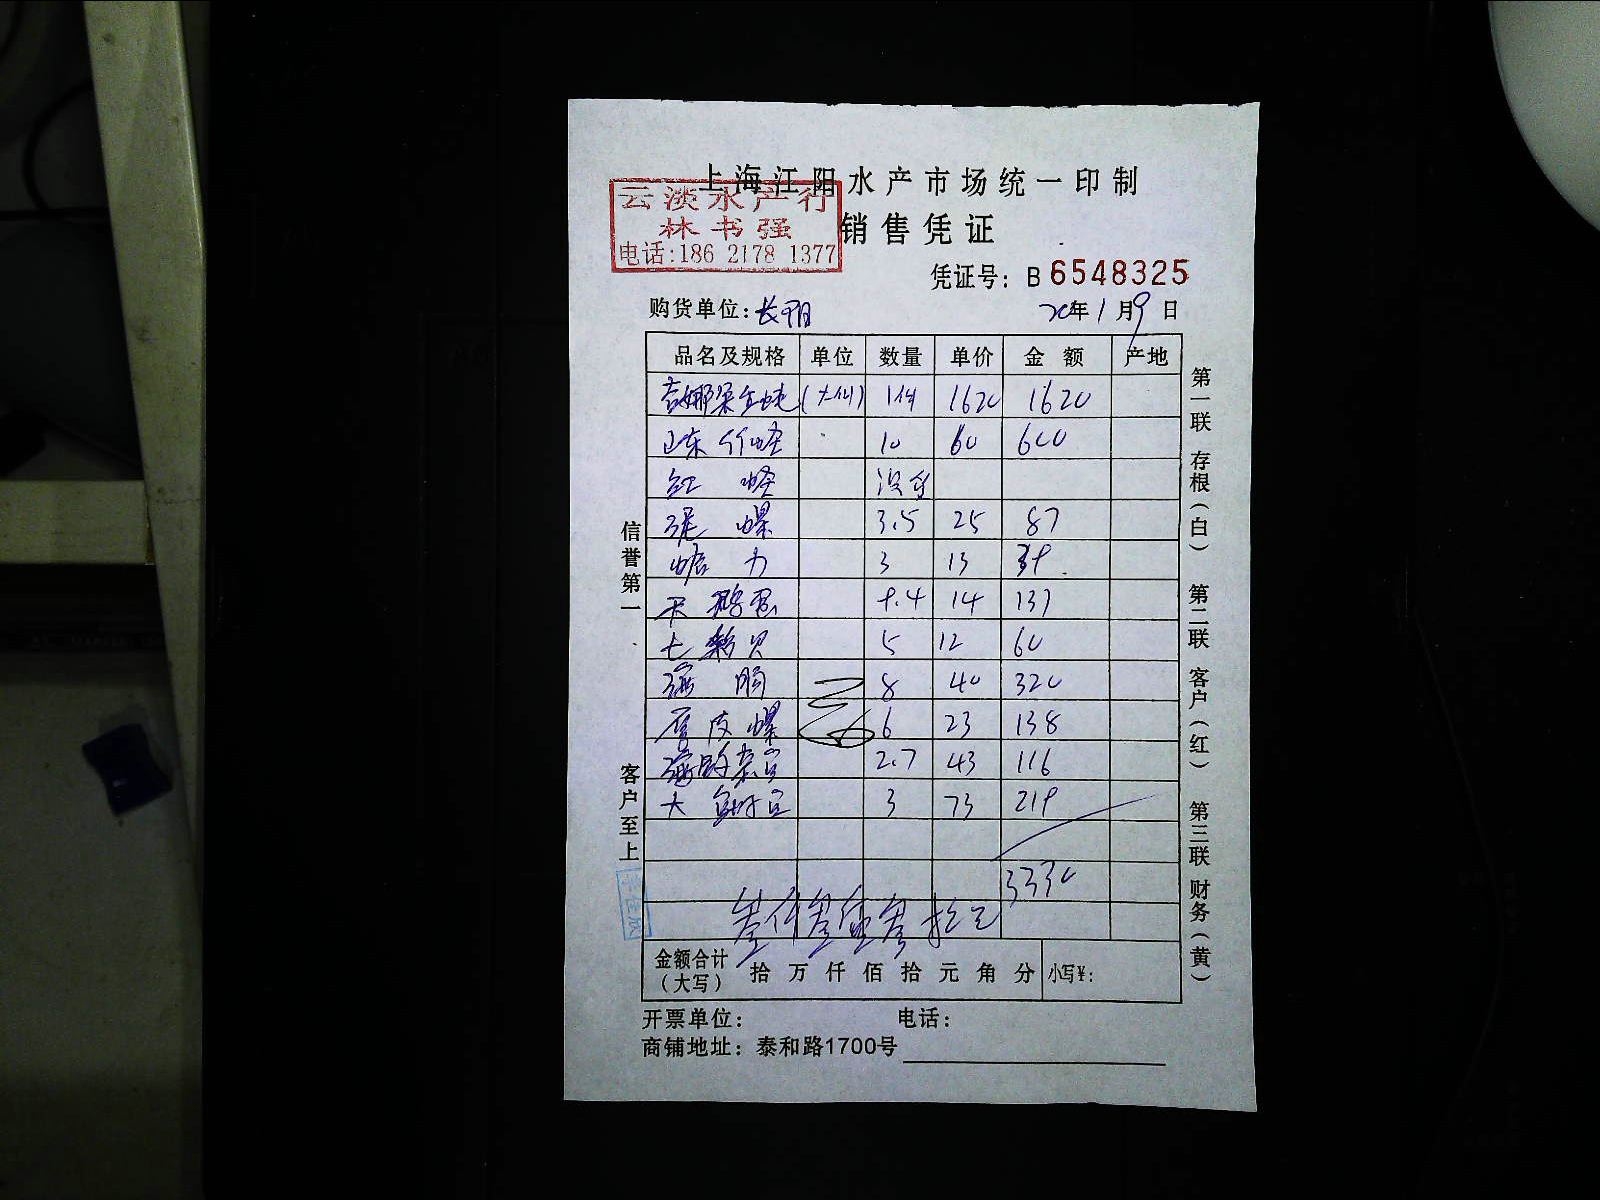 上海江阳水产市场统一印制
云淡水产行
林书强
电话:186 2178 1377
销售凭证
凭证号: B 6548325
购货单位: 长阳 20年1月9日
品名及规格 单位 数量 单价 金额 产地
吉娜朵生蚝 (大件) 1件 1620 1620
山东竹蛏 10 60 600
红蛏 没货
泥螺 3.5 25 87
蛤力 3 13 39
9.4 14 137
七彩贝 5 12 60
海肠 8 40 320
厚皮螺 6 23 138
2.7 43 116
大 3 73 219
3330
叁仟叁佰叁拾元
金额合计(大写) 拾万仟佰拾元角分 小写¥:
开票单位: 电话:
商铺地址: 泰和路1700号
信誉第一
客户至上
第一联 存根(白) 第二联 客户(红) 第三联 财务(黄)